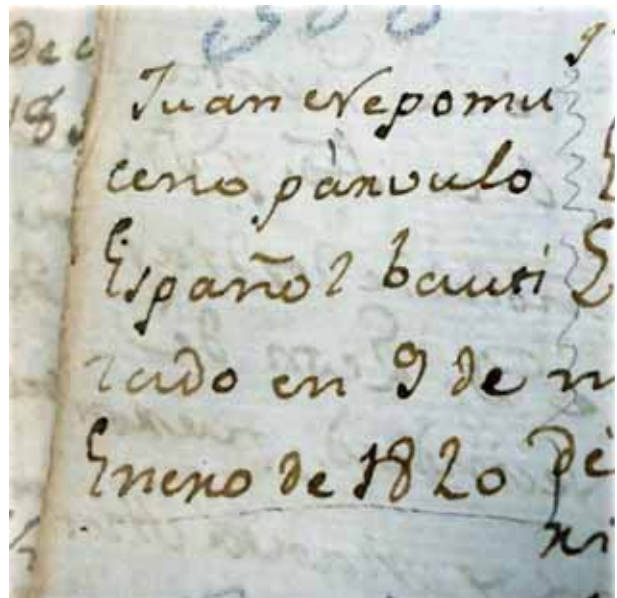 Juan Nepomu
ceno pàrvulo
Español bauti
zado en 9 de
Enero de 1820